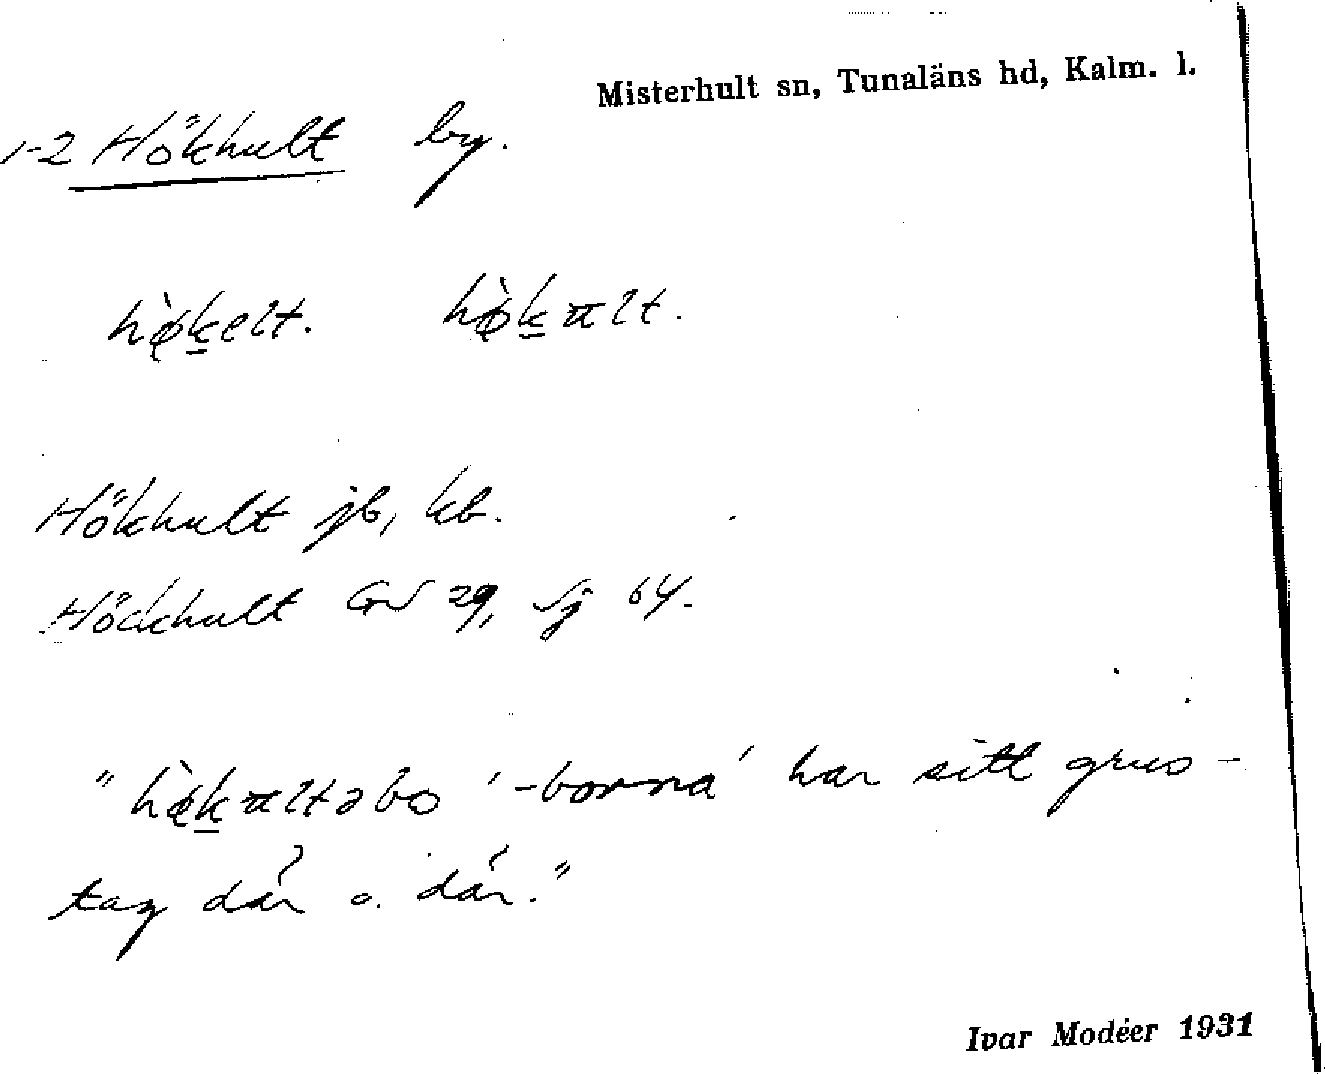 Misterhult sn, Tunaläns hd, Kalm. l.
1-2 Hökhult by.
hø̀kelt. hø̀kult.
Hökhult jb, kb.
Höckhult GS 29, Sj 64.
"hø̀kultəbo '-borna' har sitt grus-
tag där o. där."
Ivar Modéer 1931